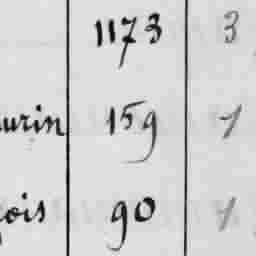 1173 3
urin 159 1
çois 90 1